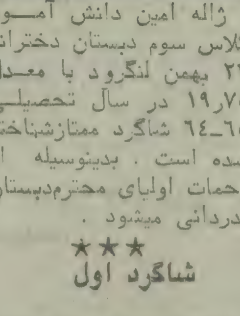 ژاله امین دانش آموز
کلاس سوم دبستان دخترانه
۲۲ بهمن لنگرود با معدل
۱۹٫۷ در سال تحصیلی
۶۴ـ شاگرد ممتازشناخته
شده است . بدینوسیله از
زحمات اولیای محترم‌دبستان
قدردانی میشود .
★★★
شاگرد اول